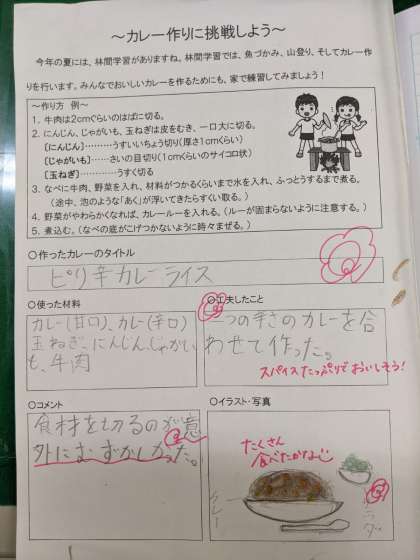 ～カレー作りに挑戦しよう～
今年の夏には、林間学習がありますね。林間学習では、魚づかみ、山登り、そしてカレー作
りを行います。みんなでおいしいカレーを作るためにも、家で練習してみましょう!
～作り方 例～
1. 牛肉は2cmぐらいのはばに切る。
2. にんじん、じゃがいも、玉ねぎは皮をむき、一口大に切る。
[にんじん]………うすいいちょう切り(厚さ1cmぐらい)
[じゃがいも]……さいの目切り(1cmぐらいのサイコロ状)
[玉ねぎ]…………うすく切る
3. なべに牛肉、野菜を入れ、材料がつかるくらいまで水を入れ、ふっとうするまで煮る。
(途中、泡のような「あく」が浮いてきたらすくい取る。)
4. 野菜がやわらかくなれば、カレールーを入れる。(ルーが固まらないように注意する。)
5. 煮込む。(なべの底がこげつかないように時々まぜる。)
○作ったカレーのタイトル
ピリ辛カレーライス
○使った材料
カレー(甘口)、カレー(辛口)
玉ねぎ、にんじん、じゃがい
も、牛肉
○工夫したこと
二つの辛さのカレーを合
わせて作った。
スパイスたっぷりでおいしそう!
○コメント
食材を切るのが意
外にむずかしかった。
○イラスト・写真
たくさん
食べたかな
カレー
サラダ